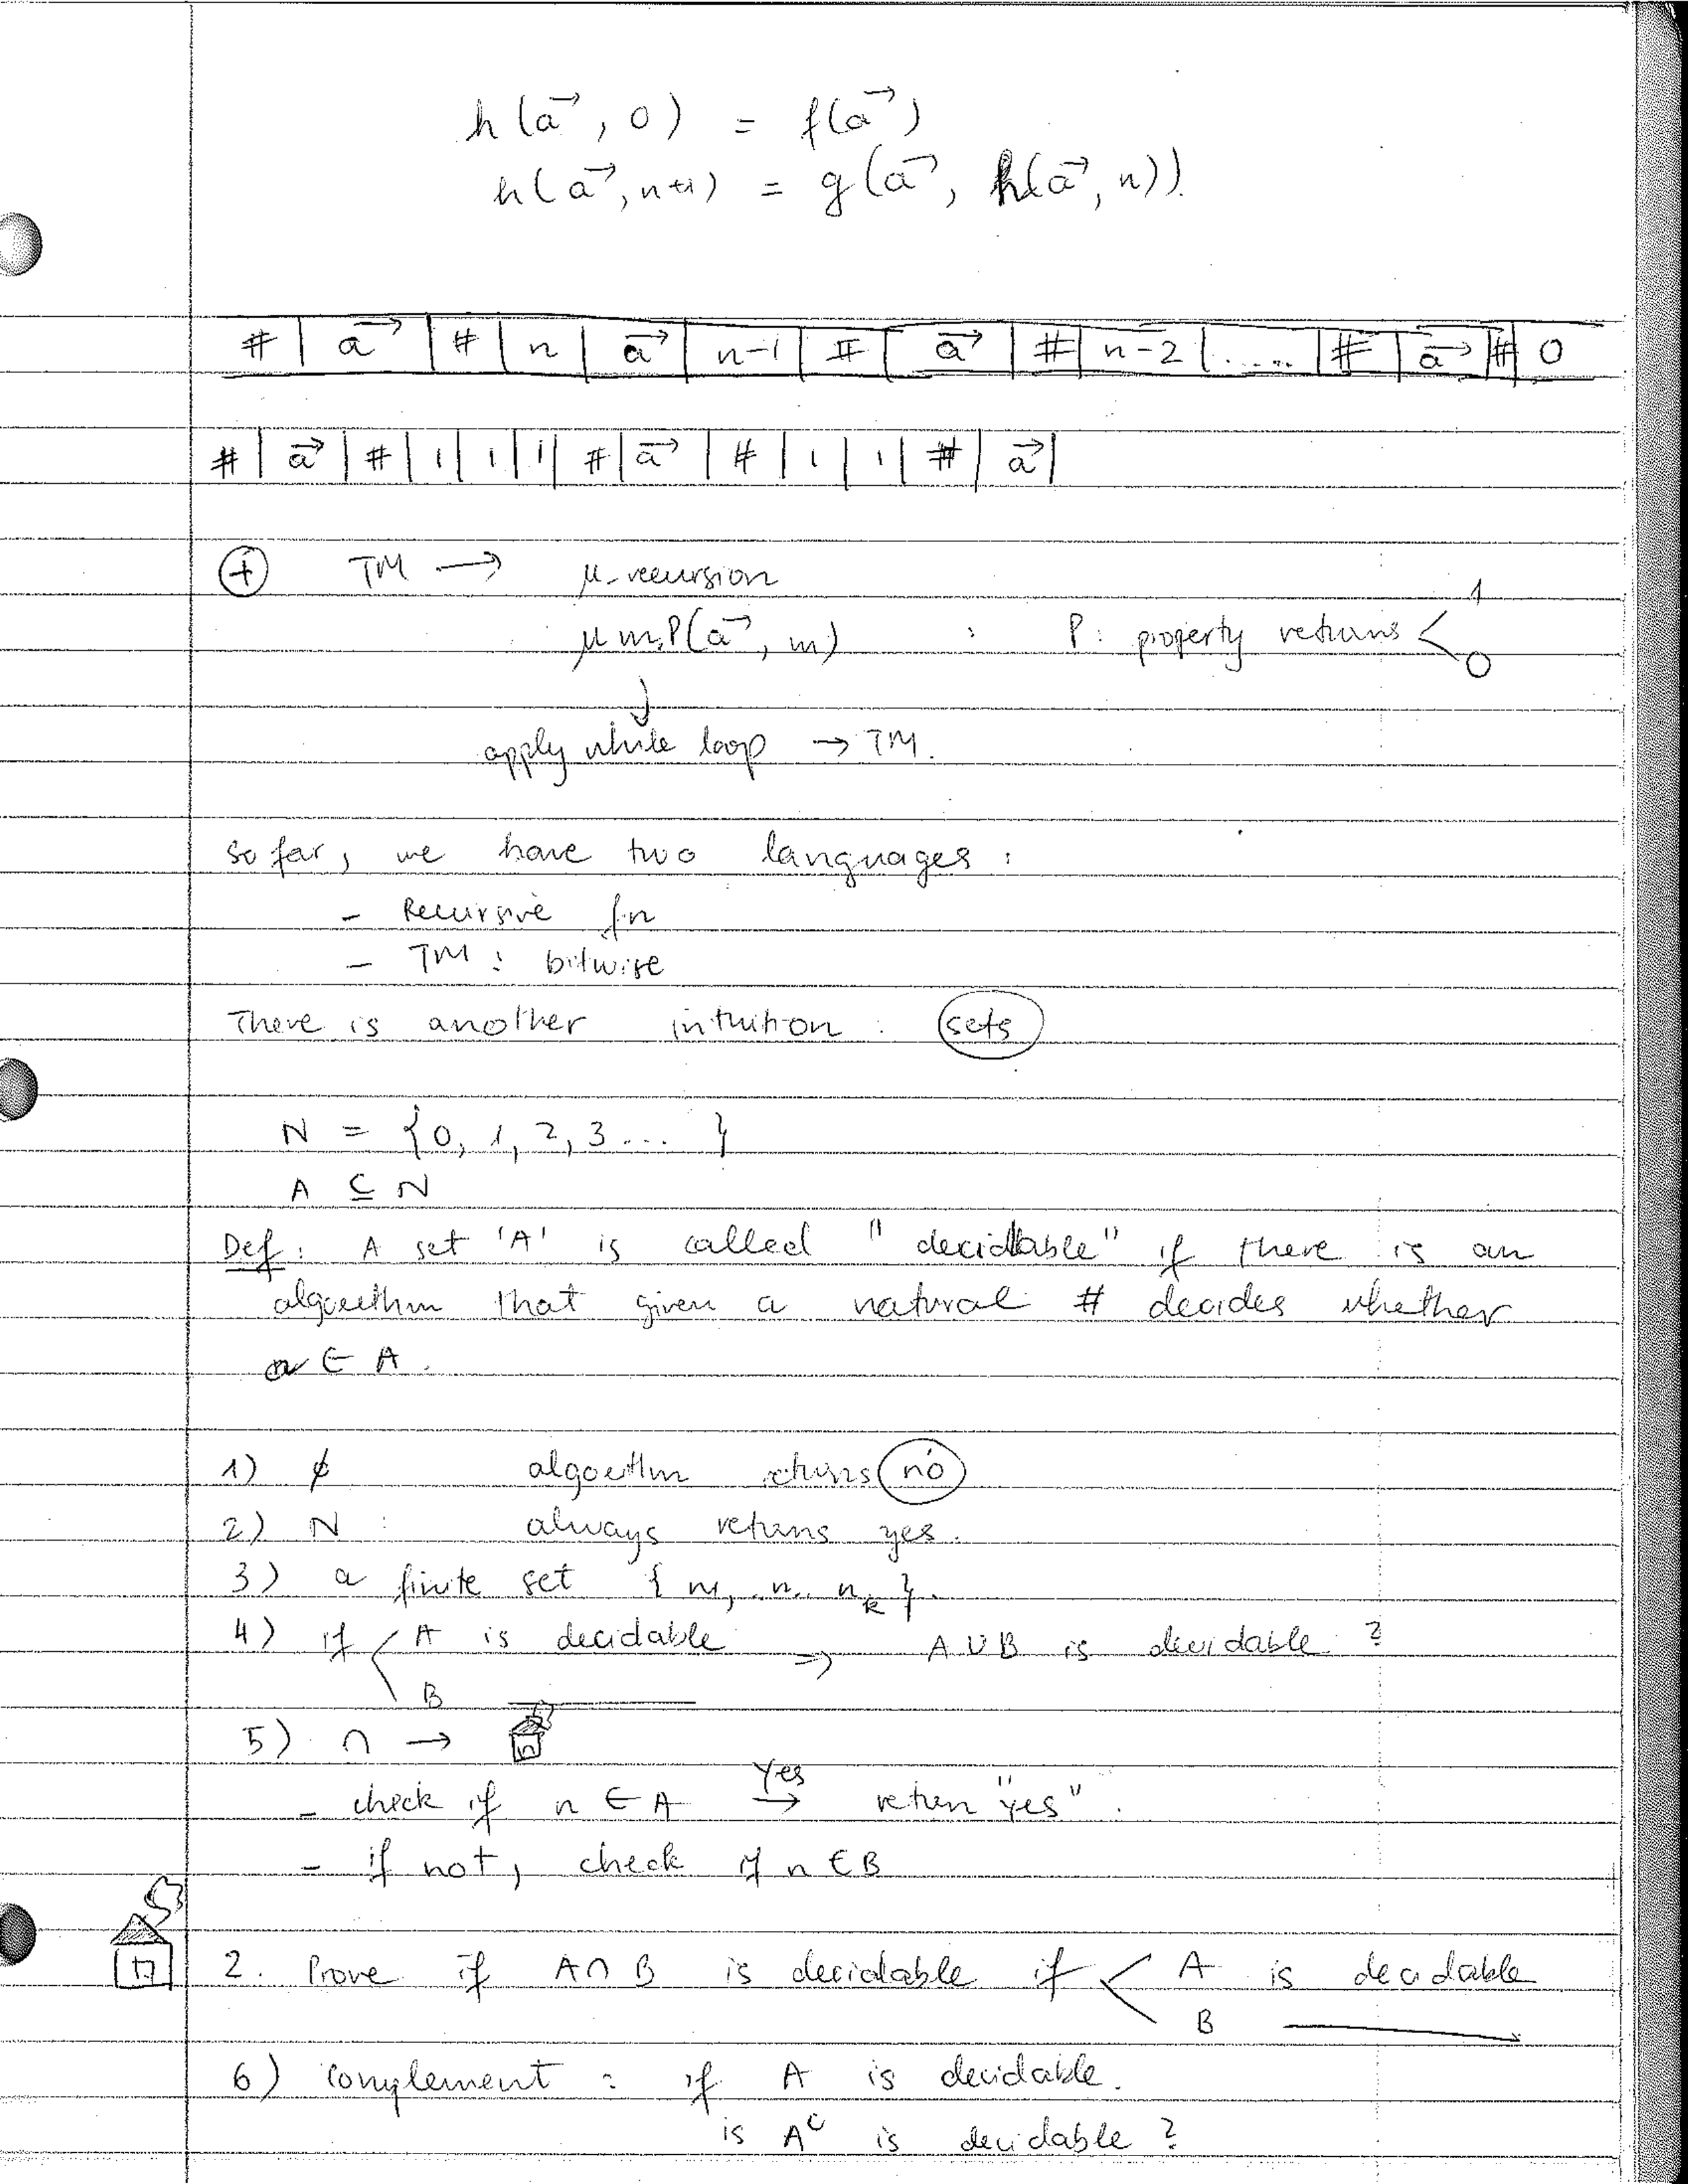 h(a⃗, 0) = f(a⃗)
h(a⃗, n+1) = g(a⃗, h(a⃗, n)).
# | a⃗ | # | n | a⃗ | n-1 | # | a⃗ | # | n-2 | ..... | # | a⃗ | # | 0
# | a⃗ | # | 1 | 1 | 1 | # | a⃗ | # | 1 | 1 | # | a⃗ |
+ TM → μ-recursion
μm.P(a⃗, m) : P: property returns < 1 0
↓
apply while loop → TM.
So far, we have two languages:
- Recursive fn
- TM: bitwise
There is another intuition: sets
N = {0, 1, 2, 3 ... }
A ⊆ N
Def: A set 'A' is called "decidable" if there is an
algorithm that given a natural # decides whether
n ∈ A.
1) ∅ algorithm returns no
2) N: always returns yes.
3) a finite set { n1, ... nk }.
4) if < A is decidable ⇒ A ∪ B is decidable ?
B ———
5) ∩ →
- check if n ∈ A →Yes return "yes".
- if not, check if n ∈ B
2. Prove if A ∩ B is decidable if < A is decidable
B ———
6) Complement : if A is decidable.
is Aᶜ is decidable ?